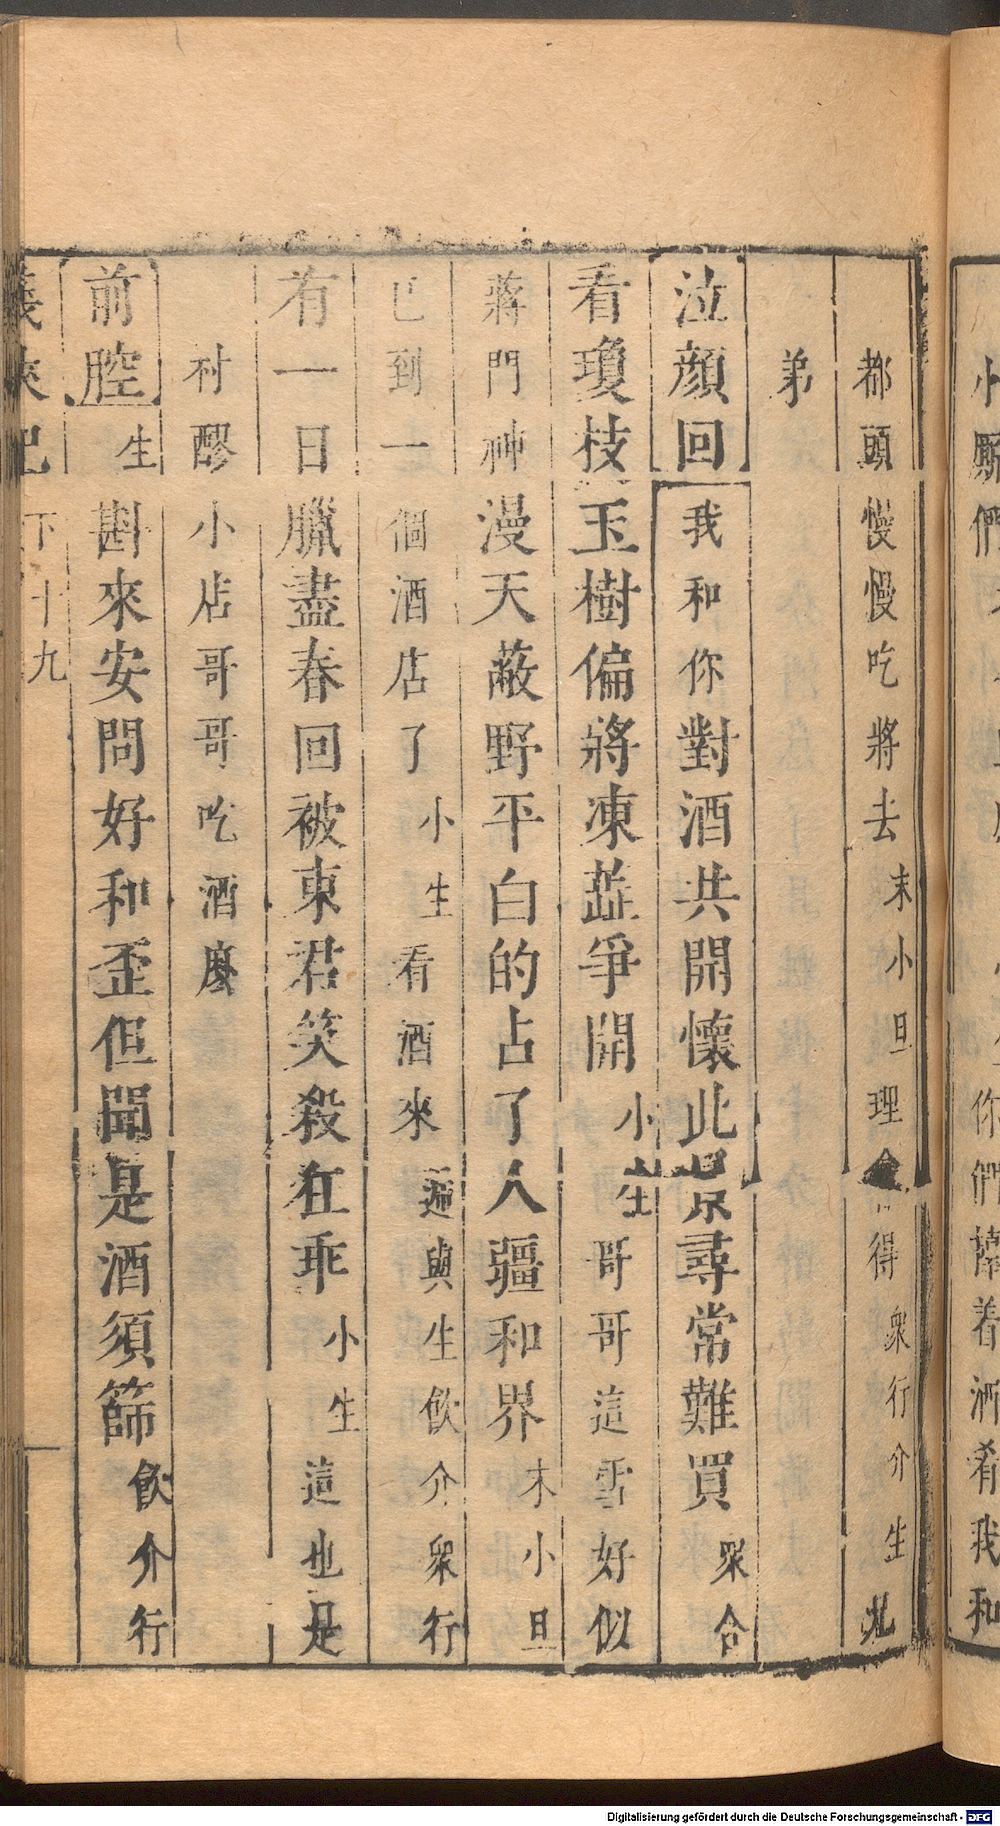 小厮們
你們攜着酒肴我和
都頭慢慢吃將去末小旦理會得眾行介生兄
弟
泣顏回我和你對酒共開懷此景尋常難買眾合
看瓊枝玉樹偏將凍蕋爭開小生哥哥這雪好似
蔣門神漫天蔽野平白的占了人疆和界末小旦
已到一個酒店了小生看酒來遞與生飲介眾行
有一日臘盡春回被東君笑殺狂乖小生這也是
村醪小店哥哥吃酒麼
前腔生斟來安問好和歪但聞是酒須篩飲介行
義俠記 下 十九
Digitalisierung gefördert durch die Deutsche Forschungsgemeinschaft - DFG